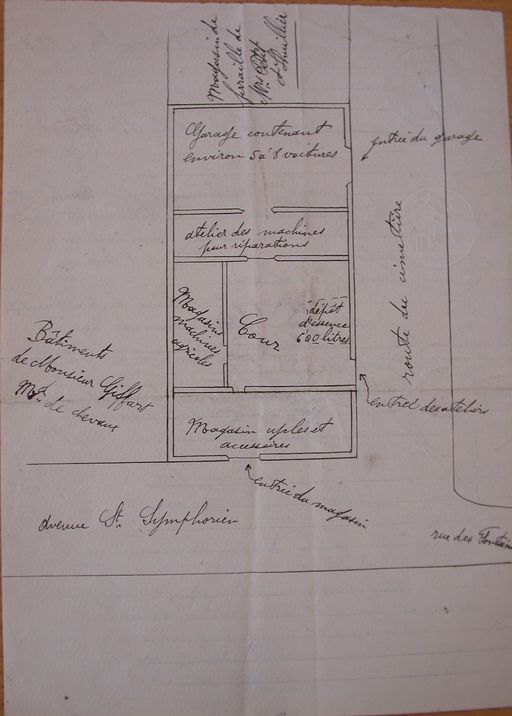 Magasin de
ferraille de
et Thuillier
Garage contenant
environ 5 à 8 voitures
entrée du garage
atelier des machines
pour réparations
route du cimetière
Magasins
machines
agricoles
Cour
dépôt
d'essence
600 litres
Bâtiments
de Monsieur Giffart
Md de chevaux
entrée des ateliers
Magasin cycles et
accessoires
entrée du magasin
avenue St. Symphorien
rue des Fontain